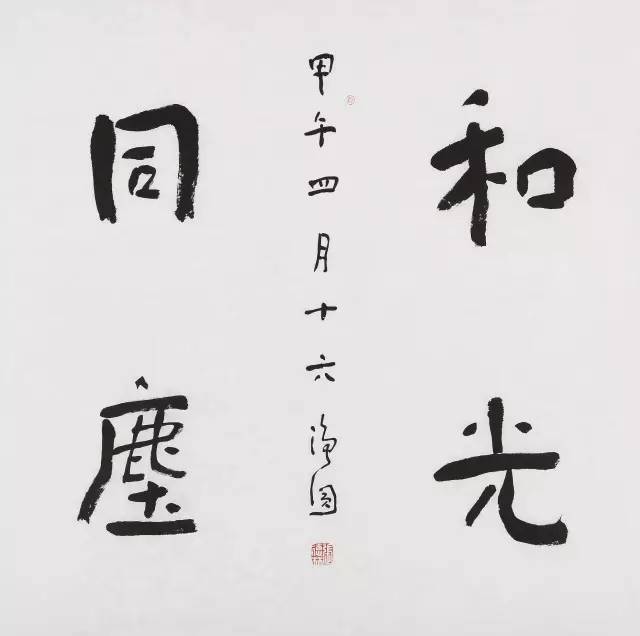 和光
同塵
甲午四月十六 净圆